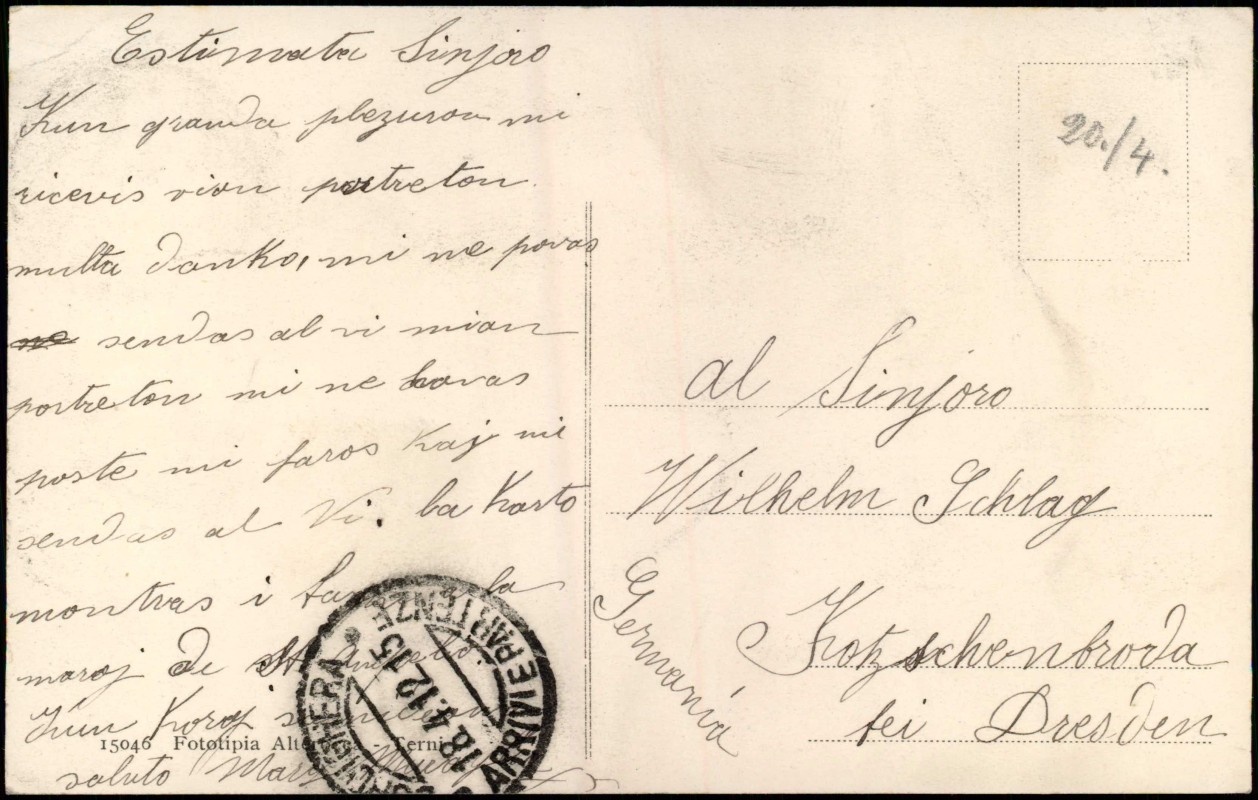 Estimata Sinjoro
Kun granda plezuron mi
ricevis vian portreton
multa danko, mi ne povas
ne sendas al vi mian
portreton mi ne havas
poste mi faros kaj mi
sendas al Vi. La Karto
montras i la
maroj de
Kun Koraj
saluto
15046 Fototipia - Terni
ARRIVI E PARTENZE
18.4.12.15
20./4.
al Sinjoro
Wilhelm Schlag
Kotzschenbroda
bei Dresden
Germania